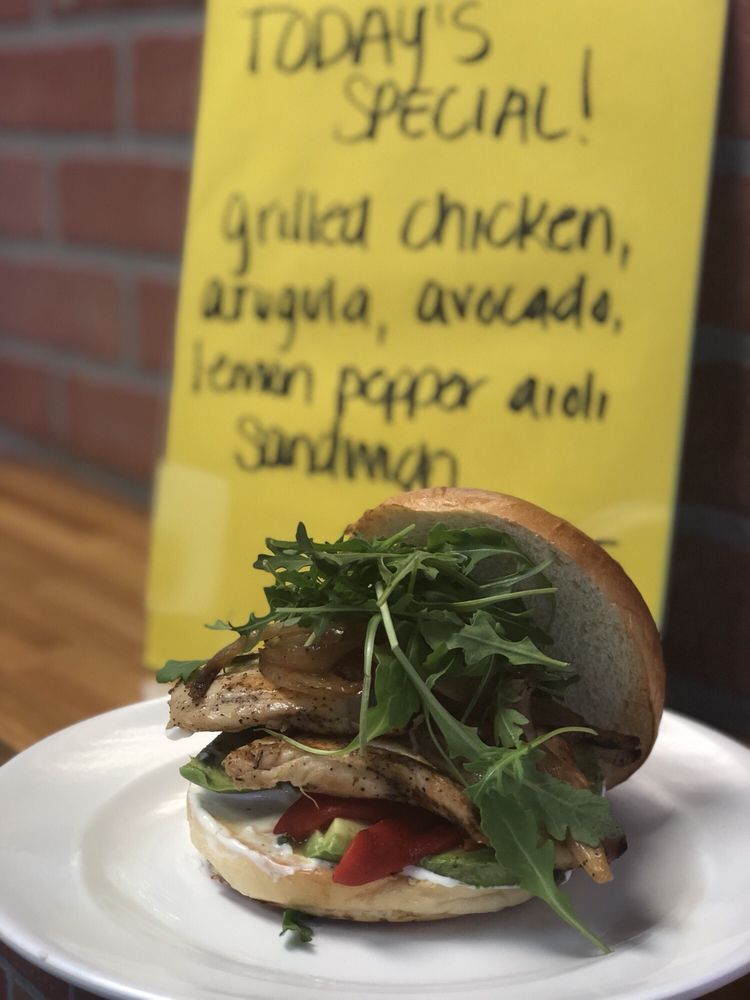 TODAY'S
SPECIAL!
grilled chicken,
arugula, avocado,
lemon pepper aioli
Sandwich